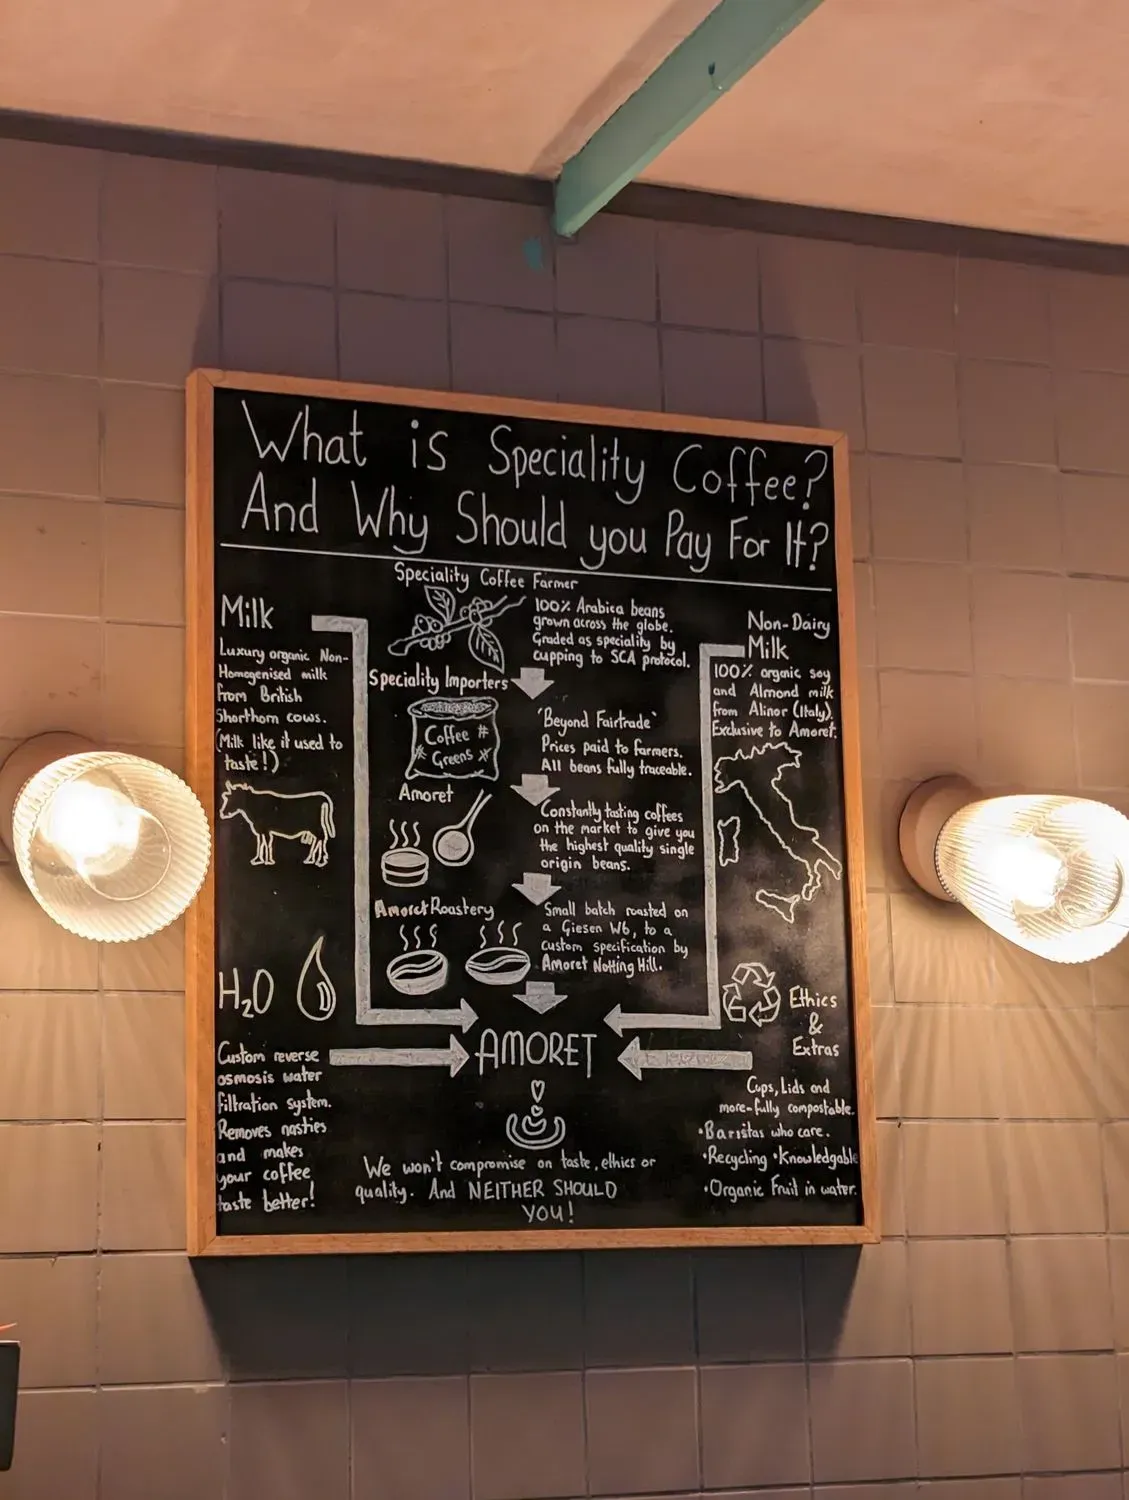 What is Speciality Coffee?
And Why Should you Pay For It?
Speciality Coffee Farmer
100% Arabica beans
grown across the globe.
Graded as speciality by
cupping to SCA protocol.
Speciality Importers
Coffee #
# Greens #
'Beyond Fairtrade'
Prices paid to farmers.
All beans fully traceable.
Amoret
Constantly tasting coffees
on the market to give you
the highest quality single
origin beans.
Amoret Roastery
Small batch roasted on
a Giesen W6, to a
custom specification by
Amoret Notting Hill.
Milk
Luxury organic Non-
Homogenised milk
from British
Shorthorn cows.
(Milk like it used to
taste!)
H2O
Custom reverse
osmosis water
filtration system.
Removes nasties
and makes
your coffee
taste better!
Non-Dairy
Milk
100% organic soy
and Almond milk
from Alinor (Italy).
Exclusive to Amoret.
Ethics
&
Extras
Cups, Lids and
more-fully compostable.
•Baristas who care.
•Recycling •Knowledgable
•Organic Fruit in water.
AMORET
We won't compromise on taste, ethics or
quality. And NEITHER SHOULD
YOU!